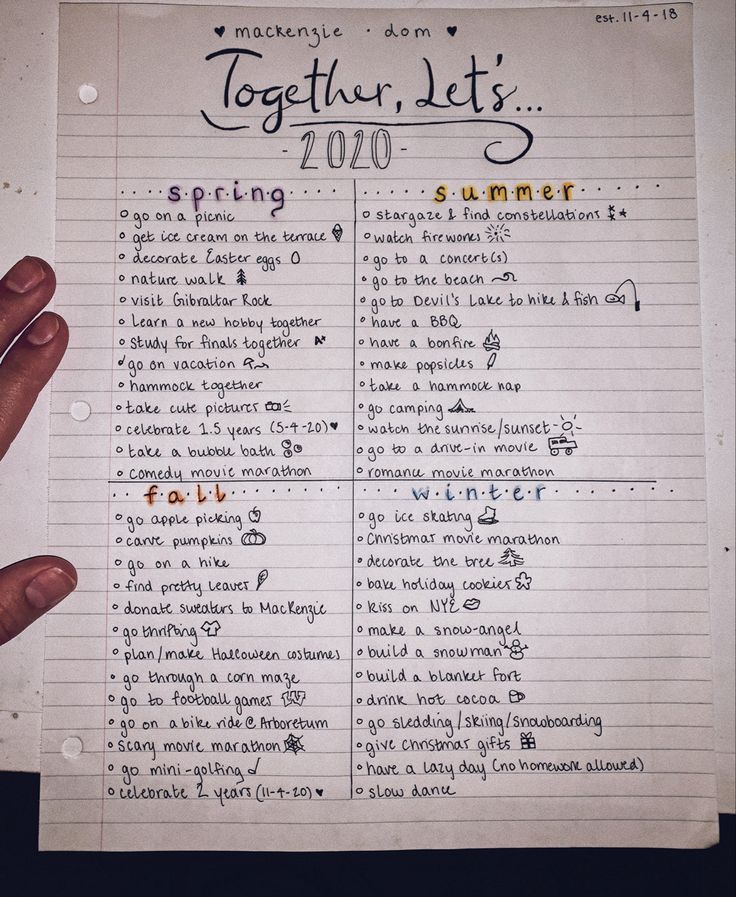 est. 11-4-18
♥ mackenzie · dom ♥
Together, Let's...
-2020-
spring
○ go on a picnic
○ get ice cream on the terrace
○ decorate Easter eggs
○ nature walk
○ visit Gibraltar Rock
○ Learn a new hobby together
○ study for finals together A+
○ go on vacation
○ hammock together
○ take cute pictures
○ celebrate 1.5 years (5-4-20) ♥
○ take a bubble bath
○ comedy movie marathon
summer
○ stargaze & find constellations
○ watch fireworks
○ go to a concert(s)
○ go to the beach
○ go to Devil's Lake to hike & fish
○ have a BBQ
○ have a bonfire
○ make popsicles
○ take a hammock nap
○ go camping
○ watch the sunrise/sunset
○ go to a drive-in movie
○ romance movie marathon
fall
○ go apple picking
○ carve pumpkins
○ go on a hike
○ find pretty leaves
○ donate sweaters to MacKenzie
○ go thrifting
○ plan/make Halloween costumes
○ go through a corn maze
○ go to football games
○ go on a bike ride @ Arboretum
○ scary movie marathon
○ go mini-golfing
○ celebrate 2 years (11-4-20) ♥
winter
○ go ice skating
○ Christmas movie marathon
○ decorate the tree
○ bake holiday cookies
○ kiss on NYE
○ make a snow-angel
○ build a snowman
○ build a blanket fort
○ drink hot cocoa
○ go sledding/skiing/snowboarding
○ give christmas gifts
○ have a lazy day (no homework allowed)
○ slow dance